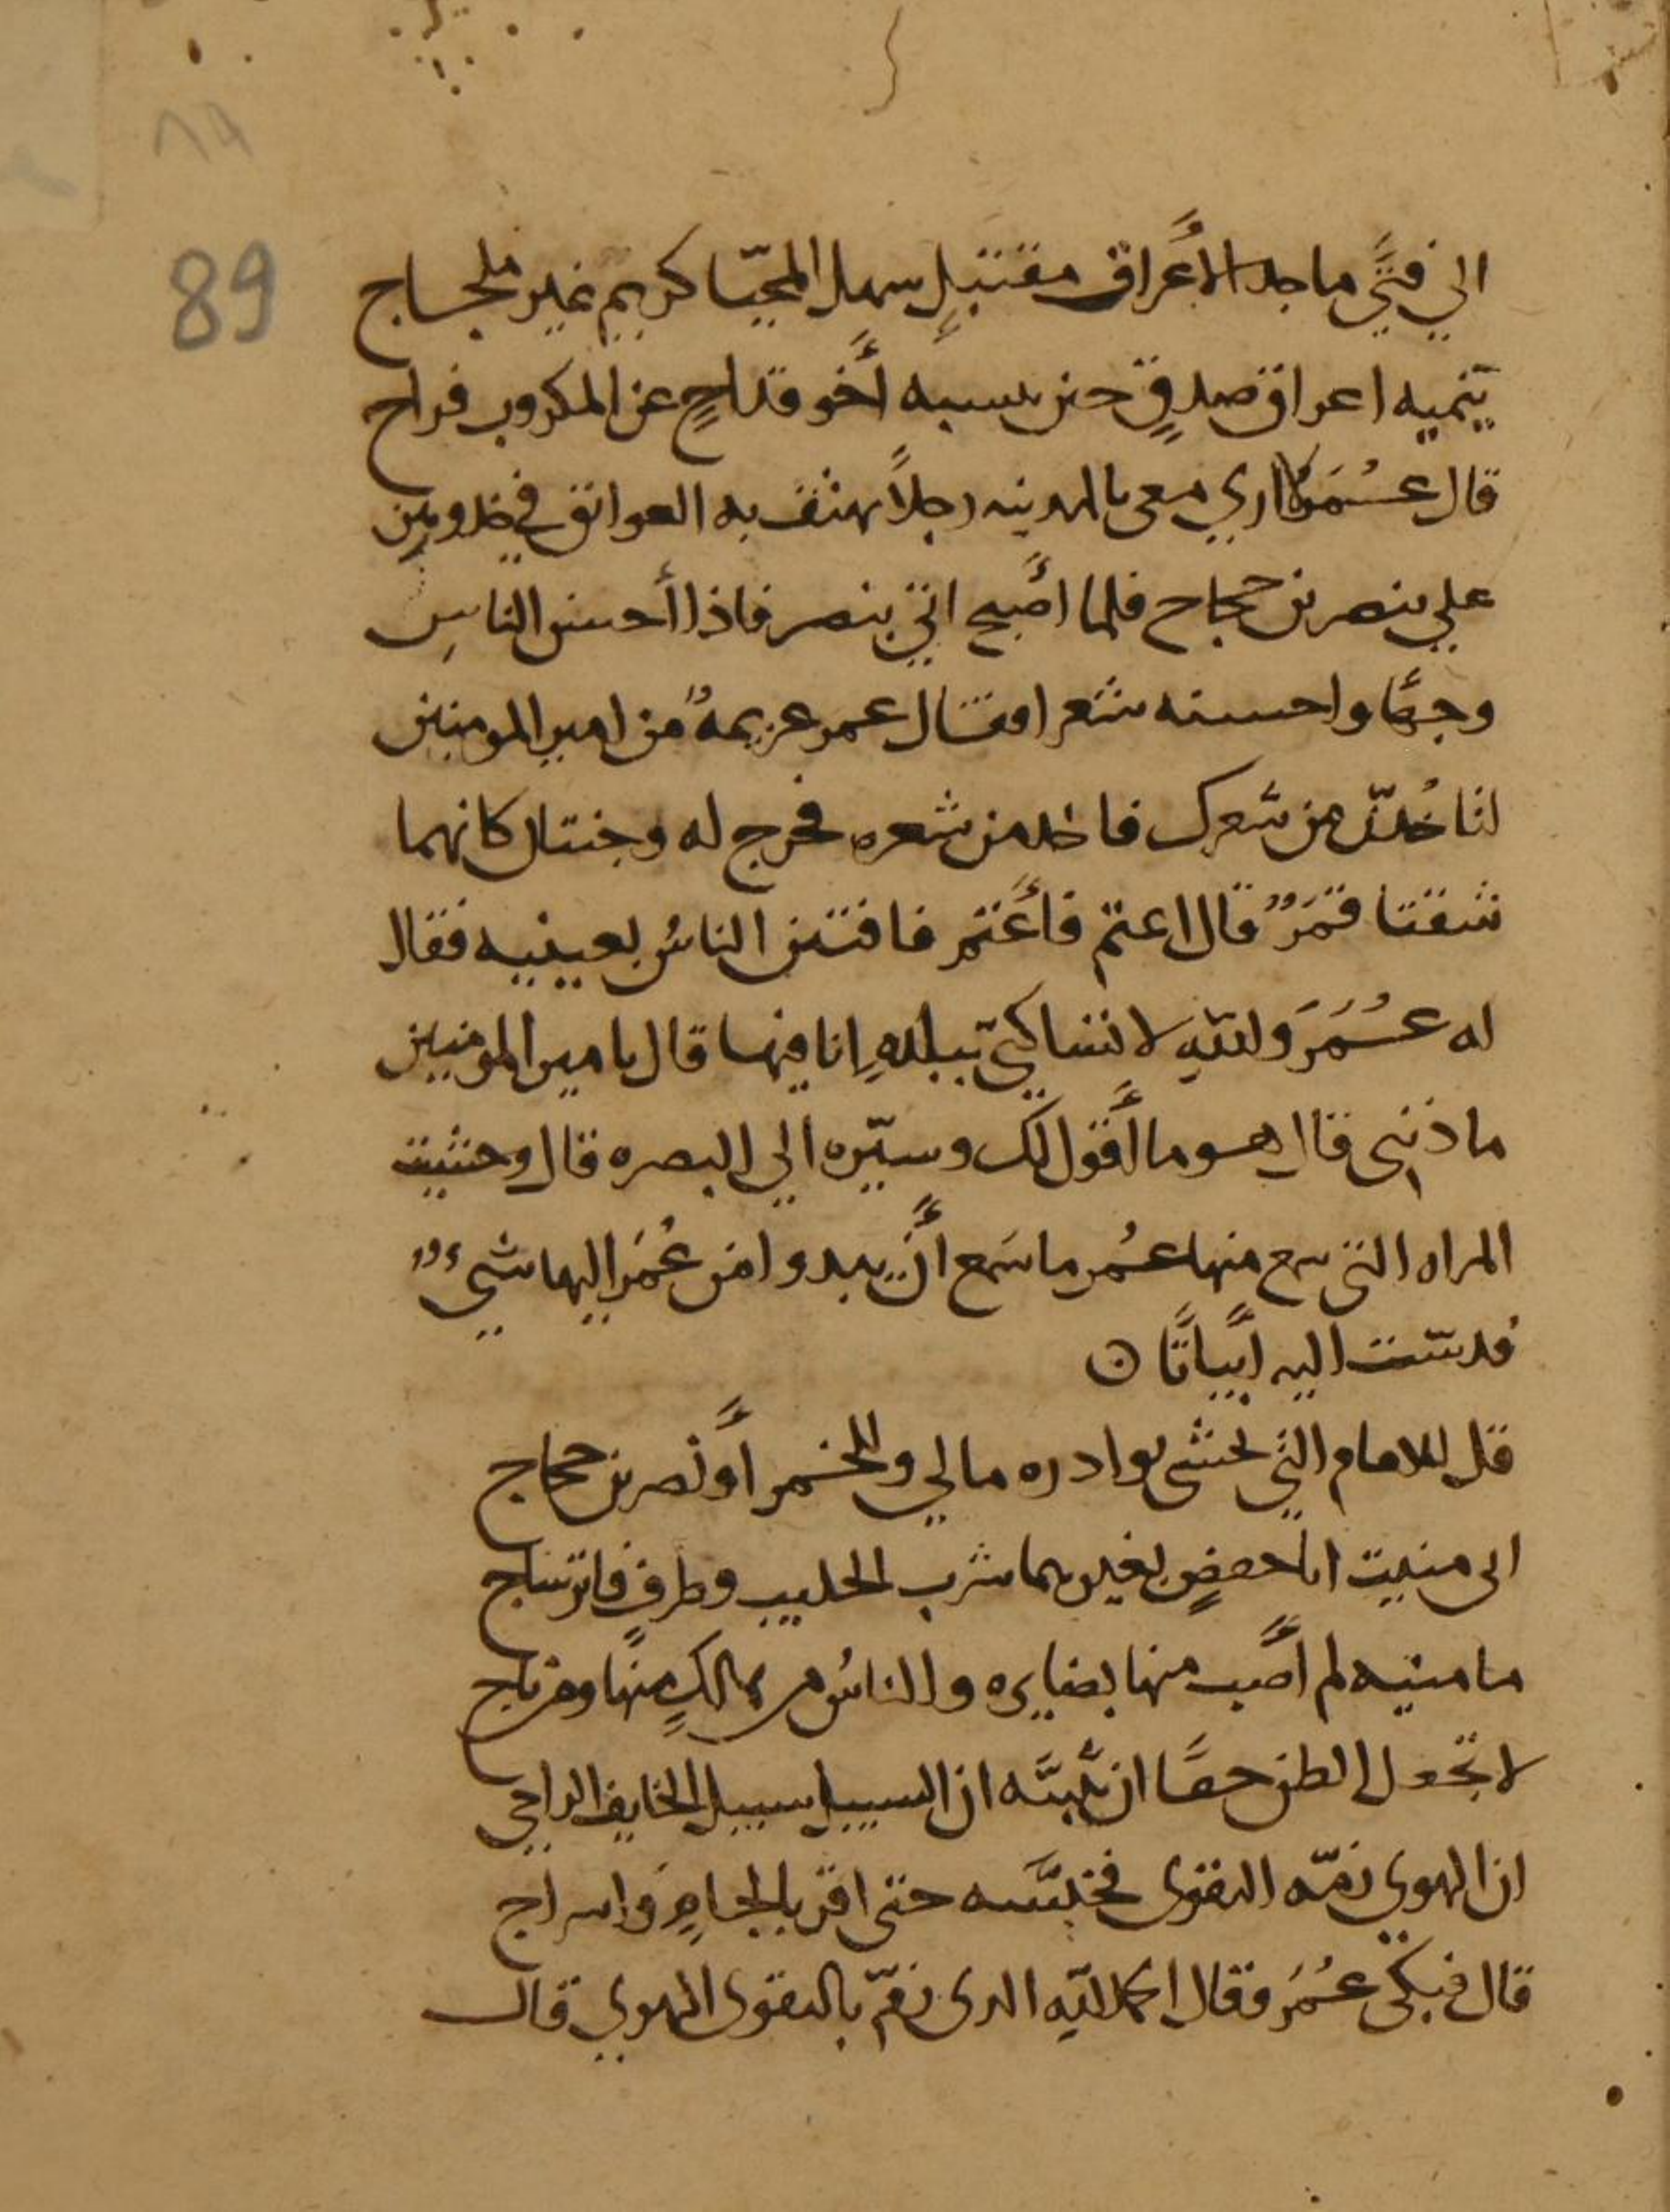 89
الي فتًي ماجد الأعراق مقتبلٍ سهل المحيّا كريم غير ملجاج
ينميه اعراق صدقٍ حين ينسبه أخو قداحٍ عن المكروب فراج
قال عُمَر لا اري معي بالمدينه رجلاً يهتف به العواتق في خدورهن
علي بنصر بن حجاج فلما أصبح اتي بنصر فاذا أحسن الناسِ
وجهًا واحسنه شعرا فقال عمر عزيمةٌ من امير المومنين
لتاخُذنّ من شعرك فاخذ من شعره فخرج له وجنتان كانهما
شقتا قمَرٌ قال اعتمّ فأعتم فافتتن الناسُ بعينيه فقال
له عُمَرَ والله لا تساكنّي ببلدهٍ انا فيها قال يامير المومنين
ما ذنبي قال هو ما أقول لك وسيّره الي البصره قال وخشيت
المراه التي سمع منها عُمر ما سَمع أن يبدو امن عُمَر اليها شيءٌ
فدسّت اليه أبياتًا ن
قل للامام الذي تخشى بوادره مالي وللخمر أو نصر بن حجاج
اني منيت ابا حفصٍ بغيرهما شرب الحليب وطرفٍ فاتر ساج
ما منيه لم أصب منها بضايره والناسُ من هالكٍ منها ومن ناج
لا تجعل الظن حقًا ان تبيَّنه ان السبيل سبيل الخايف الراجي
ان الهوي زمّه التقوى فخيّسه حتى اقر بالجامٍ واسراج
قال فبكى عُمَر وقال الحمد لله الذي زمّ بالتقوى الهوي قال